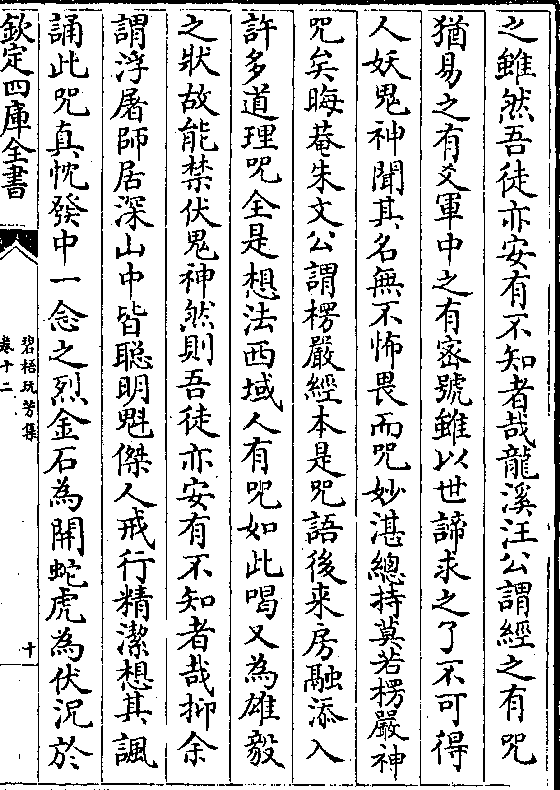 之雖然吾徒亦安有不知者哉龍溪汪公謂經之有咒
猶易之有爻軍中之有密號雖以世諦求之了不可得
人妖鬼神聞其名無不怖畏而咒妙湛總持莫若楞嚴神
咒矣晦菴朱文公謂楞嚴經本是咒語後來房融添入
許多道理咒全是想法西域人有咒如此喝又為雄毅
之狀故能禁伏鬼神然則吾徒亦安有不知者哉抑余
謂浮屠師居深山中皆聰明魁傑人戒行精潔想其諷
誦此咒真忱發中一念之烈金石為開蛇虎為伏況於
欽定四庫全書
碧梧玩芳集
卷十二
十